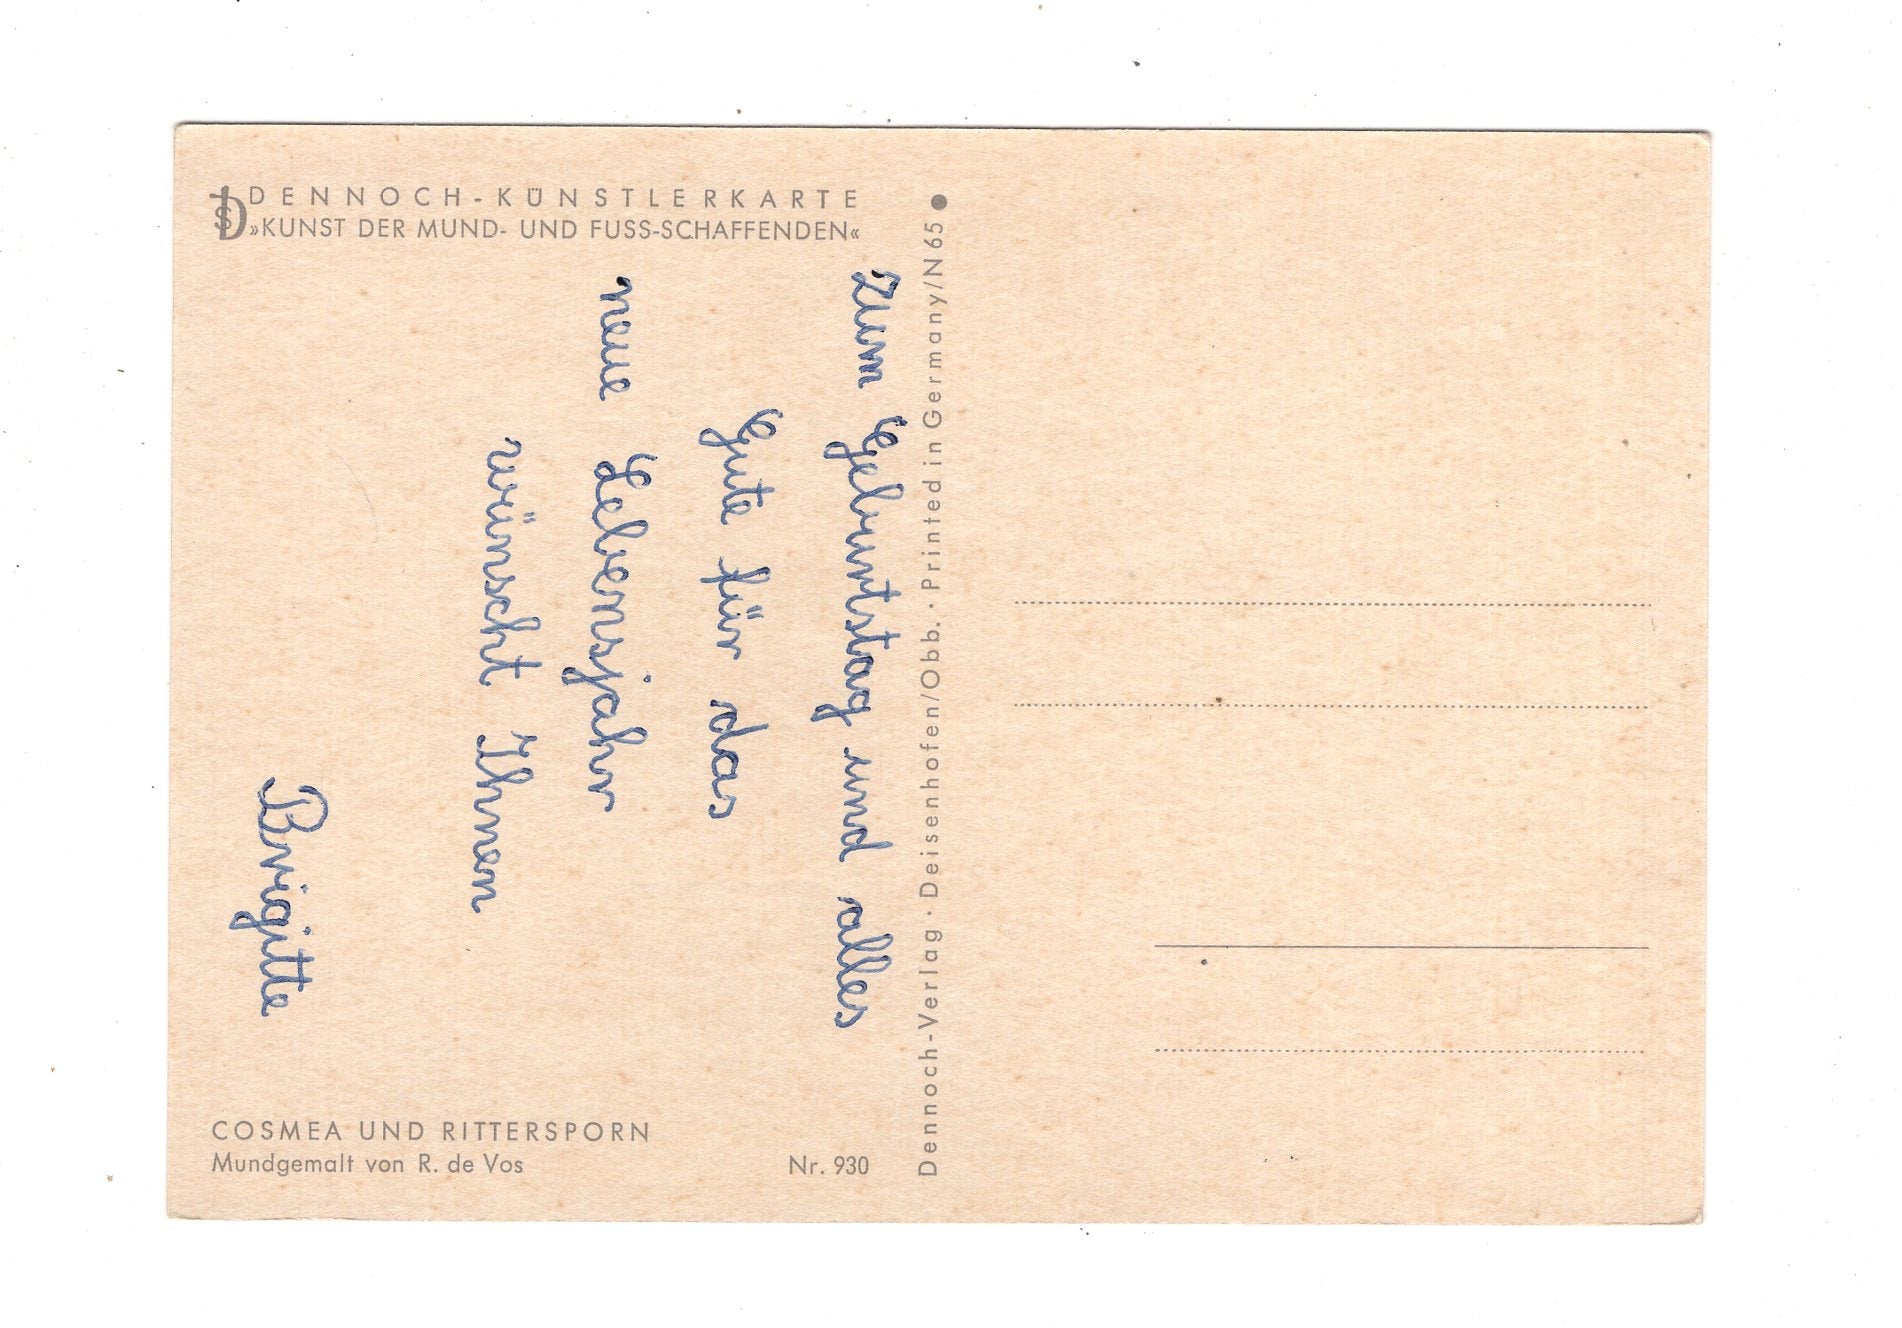 DENNOCH-KÜNSTLERKARTE
»KUNST DER MUND- UND FUSS-SCHAFFENDEN«
Zum Geburtstag und alles
Gute für das
neue Lebensjahr
wünscht Ihnen
Brigitte
COSMEA UND RITTERSPORN
Mundgemalt von R. de Vos
Nr. 930
Dennoch-Verlag · Deisenhofen/Obb. · Printed in Germany/N 65